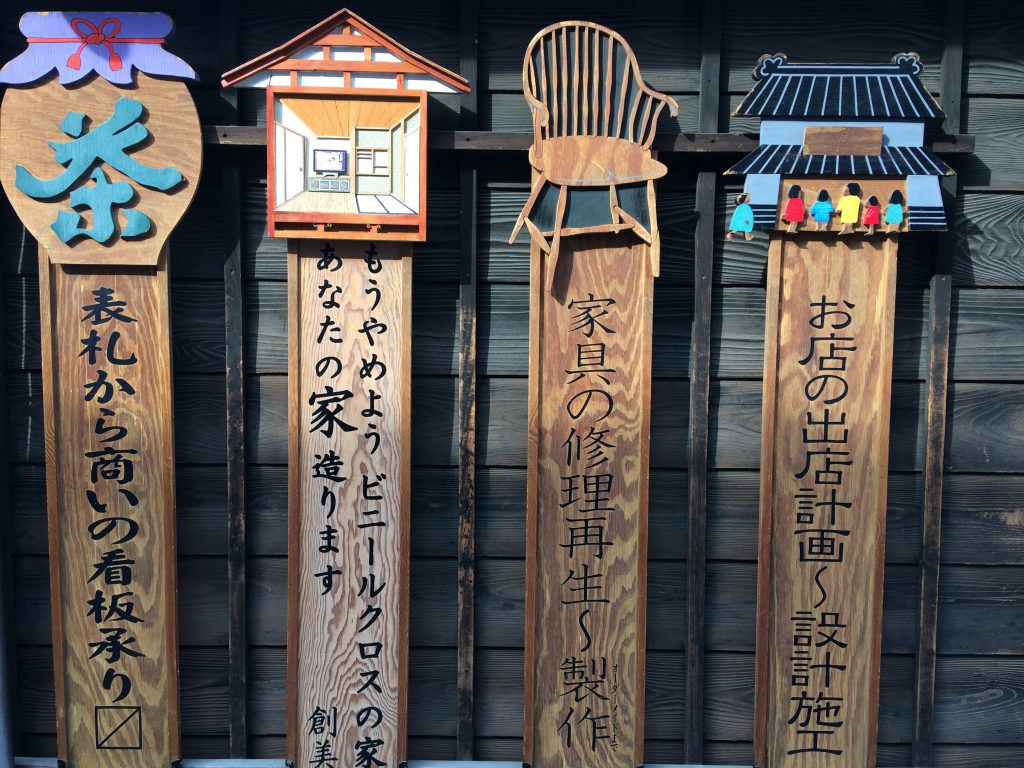 茶
表札から商いの看板承り〼
もうやめようビニールクロスの家
あなたの家造ります
創美
家具の修理再生〜製作
お店の出店計画〜設計施工